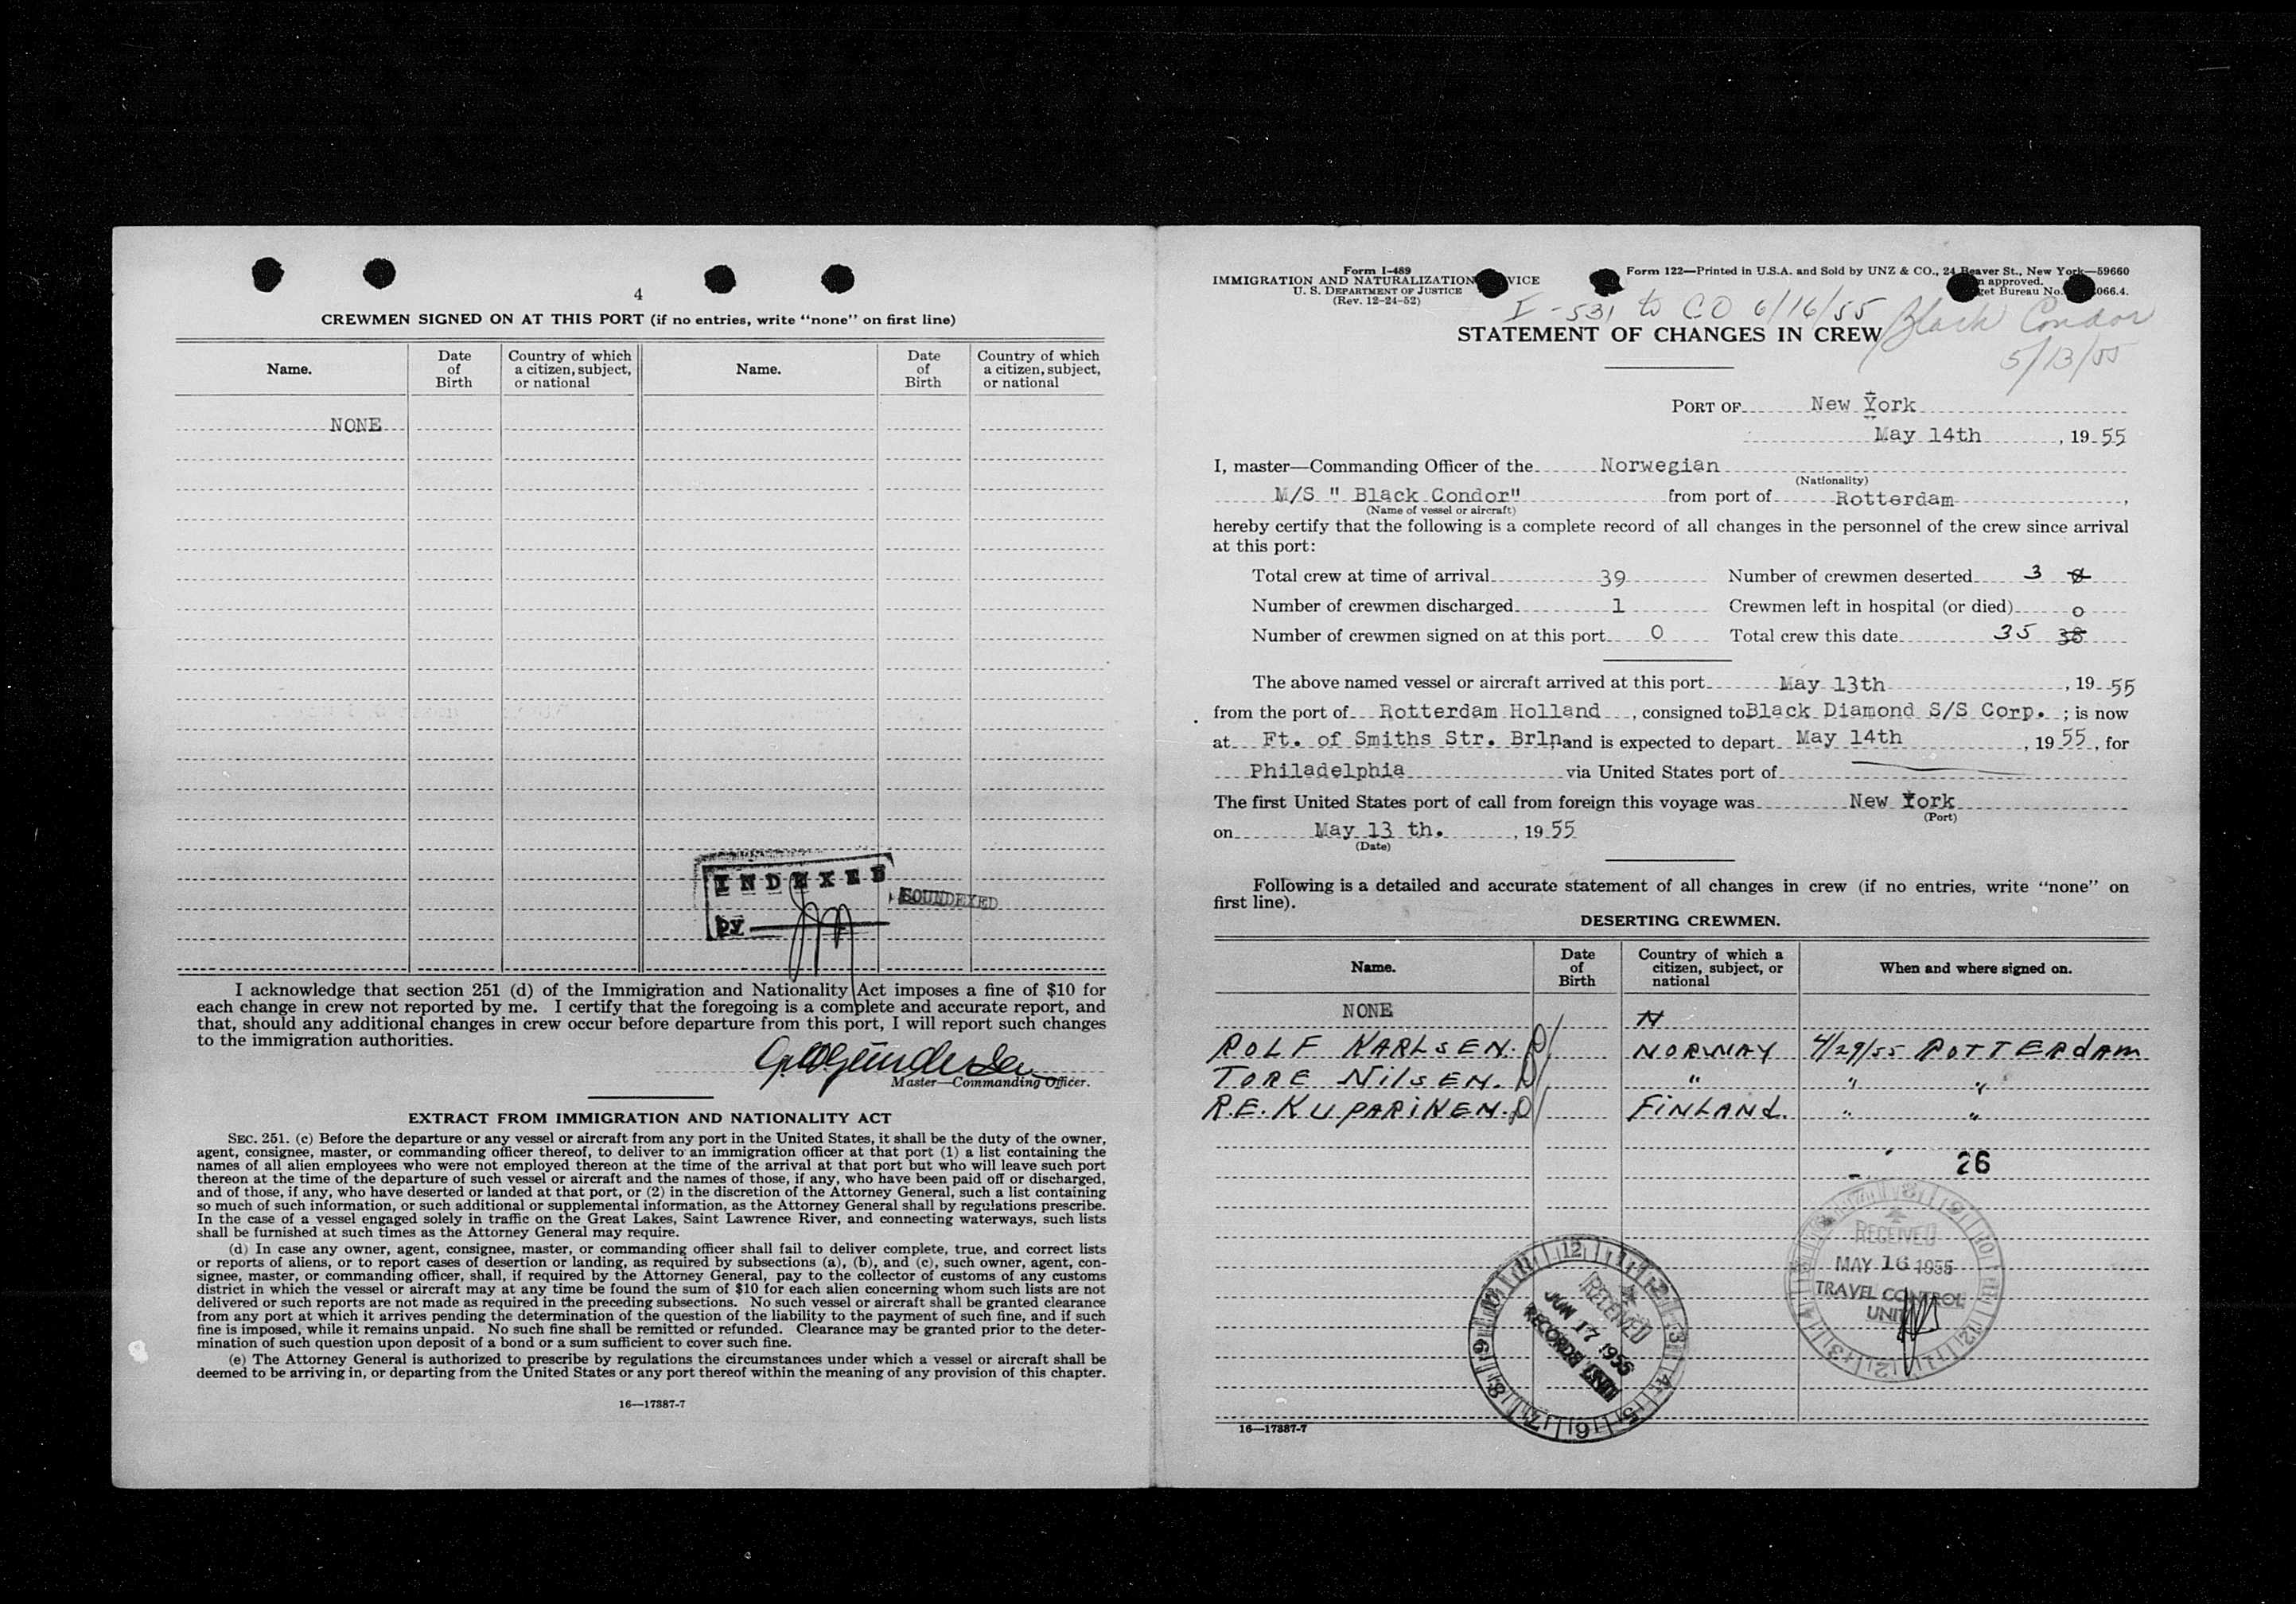 4
CREWMEN SIGNED ON AT THIS PORT (if no entries, write "none" on first line)
Name.
Date of Birth
Country of which a citizen, subject, or national
Name.
Date of Birth
Country of which a citizen, subject, or national
NONE
INDEXED
by
SOUNDEXED
I acknowledge that section 251 (d) of the Immigration and Nationality Act imposes a fine of $10 for
each change in crew not reported by me. I certify that the foregoing is a complete and accurate report, and
that, should any additional changes in crew occur before departure from this port, I will report such changes
to the immigration authorities.
Master—Commanding Officer.
EXTRACT FROM IMMIGRATION AND NATIONALITY ACT
SEC. 251. (c) Before the departure or any vessel or aircraft from any port in the United States, it shall be the duty of the owner,
agent, consignee, master, or commanding officer thereof, to deliver to an immigration officer at that port (1) a list containing the
names of all alien employees who were not employed thereon at the time of the arrival at that port but who will leave such port
thereon at the time of the departure of such vessel or aircraft and the names of those, if any, who have been paid off or discharged,
and of those, if any, who have deserted or landed at that port, or (2) in the discretion of the Attorney General, such a list containing
so much of such information, or such additional or supplemental information, as the Attorney General shall by regulations prescribe.
In the case of a vessel engaged solely in traffic on the Great Lakes, Saint Lawrence River, and connecting waterways, such lists
shall be furnished at such times as the Attorney General may require.
(d) In case any owner, agent, consignee, master, or commanding officer shall fail to deliver complete, true, and correct lists
or reports of aliens, or to report cases of desertion or landing, as required by subsections (a), (b), and (c), such owner, agent, con-
signee, master, or commanding officer, shall, if required by the Attorney General, pay to the collector of customs of any customs
district in which the vessel or aircraft may at any time be found the sum of $10 for each alien concerning whom such lists are not
delivered or such reports are not made as required in the preceding subsections. No such vessel or aircraft shall be granted clearance
from any port at which it arrives pending the determination of the question of the liability to the payment of such fine, and if such
fine is imposed, while it remains unpaid. No such fine shall be remitted or refunded. Clearance may be granted prior to the deter-
mination of such question upon deposit of a bond or a sum sufficient to cover such fine.
(e) The Attorney General is authorized to prescribe by regulations the circumstances under which a vessel or aircraft shall be
deemed to be arriving in, or departing from the United States or any port thereof within the meaning of any provision of this chapter.
16—17887-7
Form I-489
IMMIGRATION AND NATURALIZATION VICE
U. S. DEPARTMENT OF JUSTICE
(Rev. 12-24-52)
Form 122—Printed in U.S.A. and Sold by UNZ & CO., 24 Beaver St., New York—59660
approved.
get Bureau No. 066.4.
I-531 to CO 6/16/55
Black Condor
5/13/55
STATEMENT OF CHANGES IN CREW
PORT OF New York
May 14th, 1955
I, master—Commanding Officer of the Norwegian
(Nationality)
M/S " Black Condor" from port of Rotterdam,
(Name of vessel or aircraft)
hereby certify that the following is a complete record of all changes in the personnel of the crew since arrival
at this port:
Total crew at time of arrival 39 Number of crewmen deserted 3 0
Number of crewmen discharged 1 Crewmen left in hospital (or died) 0
Number of crewmen signed on at this port 0 Total crew this date 35 38
The above named vessel or aircraft arrived at this port May 13th, 1955
from the port of Rotterdam Holland, consigned to Black Diamond S/S Corp. ; is now
at Ft. of Smiths Str. Brln and is expected to depart May 14th, 1955, for
Philadelphia via United States port of
The first United States port of call from foreign this voyage was New York
(Port)
on May 13 th., 1955
(Date)
Following is a detailed and accurate statement of all changes in crew (if no entries, write "none" on
first line).
DESERTING CREWMEN.
Name.
Date of Birth
Country of which a citizen, subject, or national
When and where signed on.
NONE N
ROLF KARLSEN. NORWAY 4/29/55 ROTTERdAM
TORE NilsEN. " " "
R.E. KUPARiNEN. FiNLANd. " "
26
RECEIVED
MAY 16 1955
TRAVEL CONTROL
UNIT
RECEIVED
JUN 17 1955
RECORDS UNIT
16—17887-7